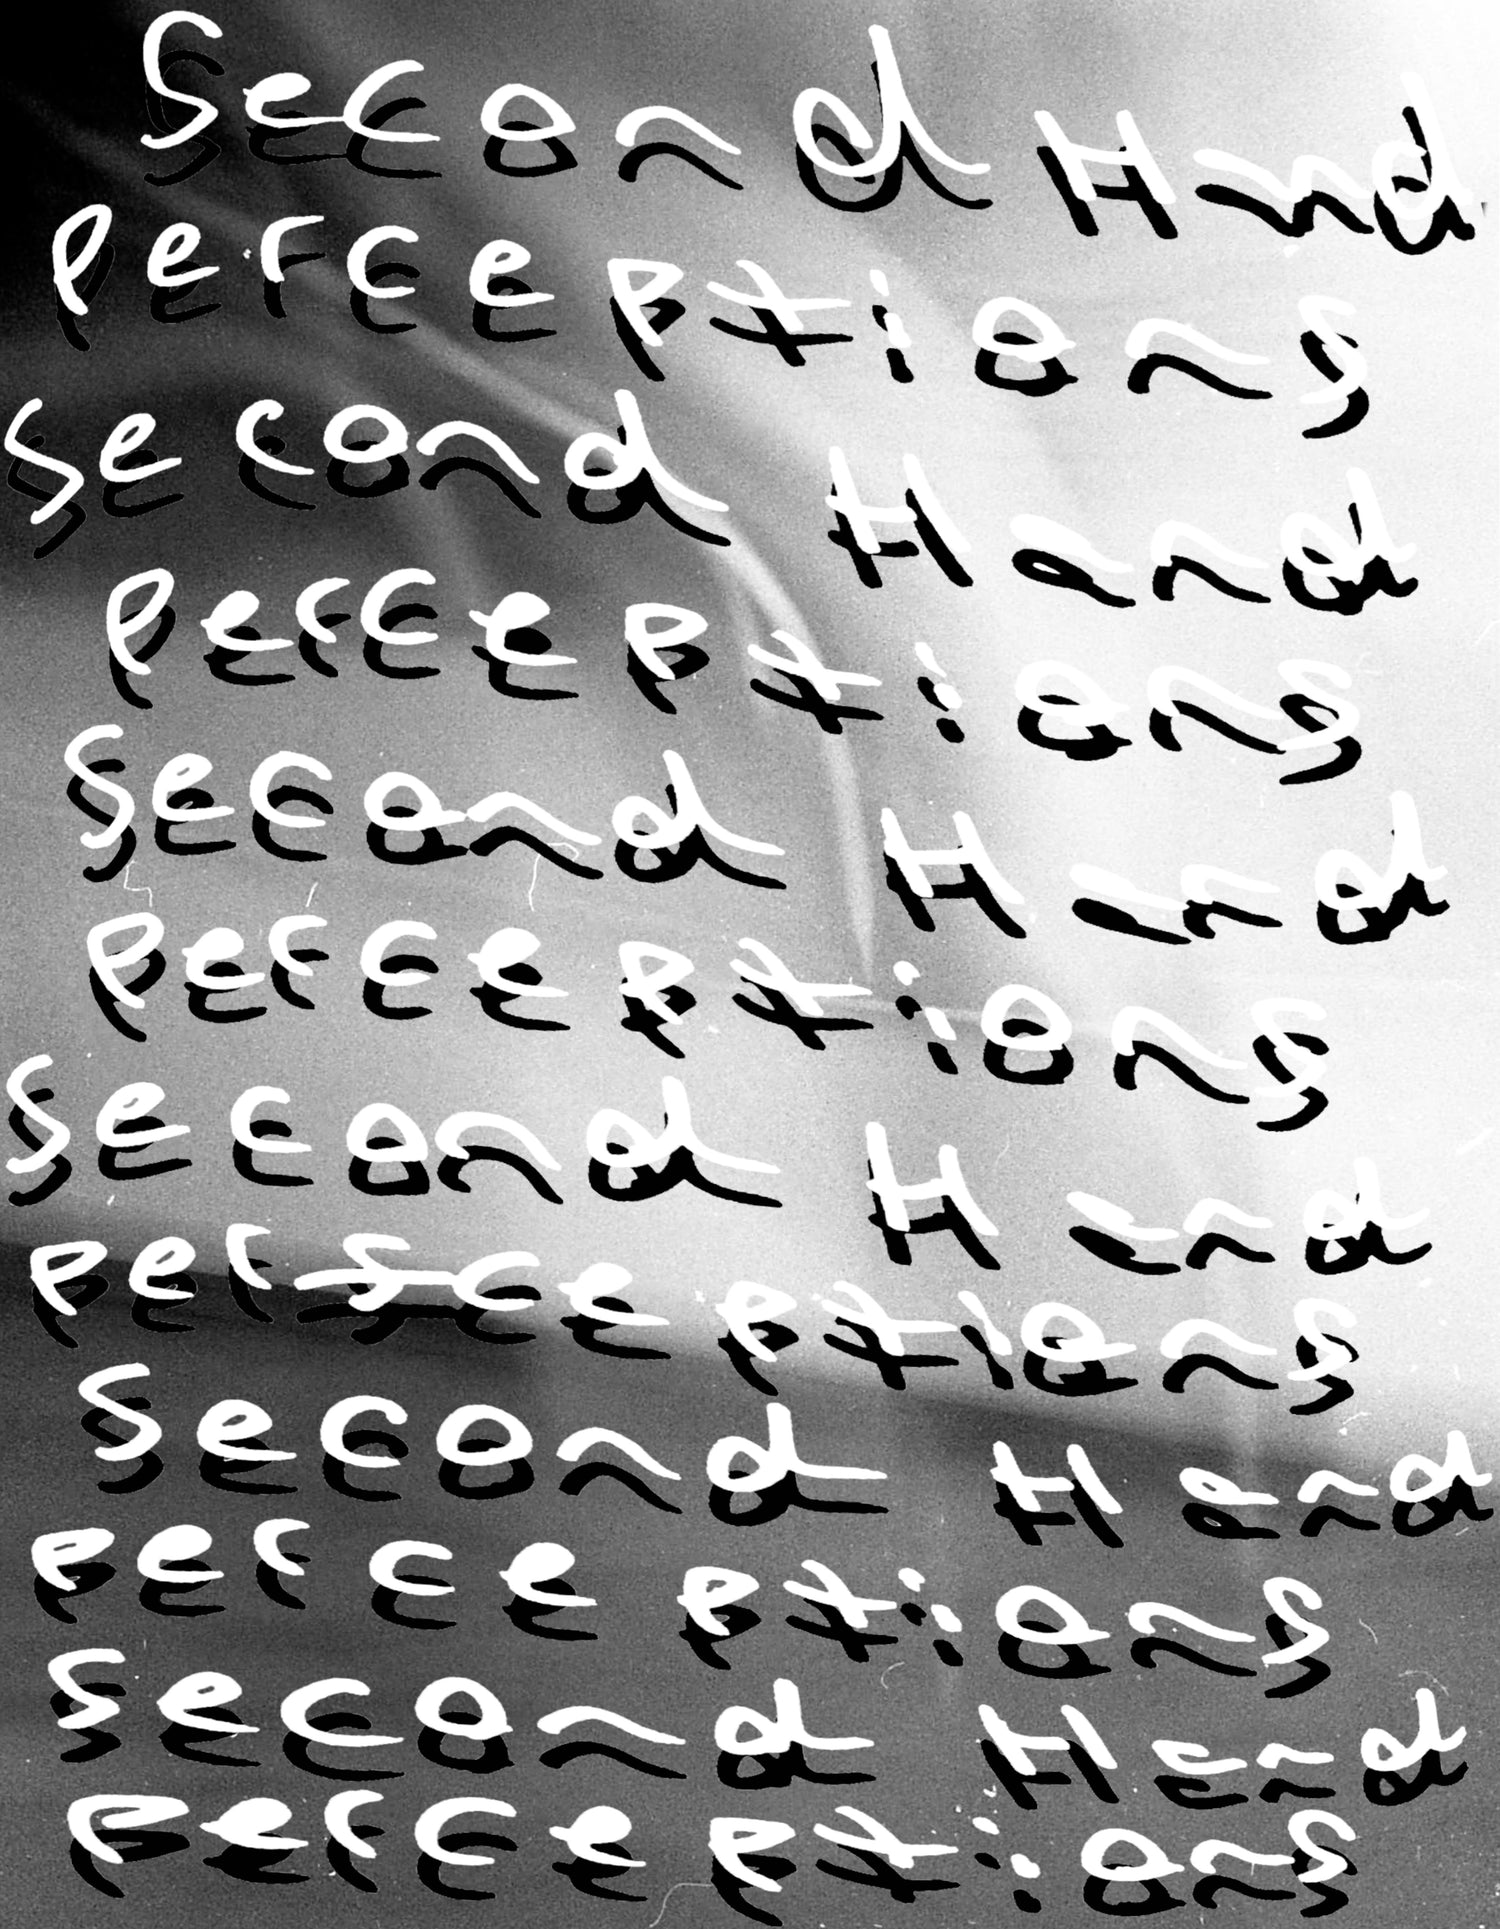 Second Hand
Perceptions
Second Hand
Perceptions
Second Hand
Perceptions
Second Hand
Perceptions
Second Hand
Perceptions
Second Hand
Perceptions